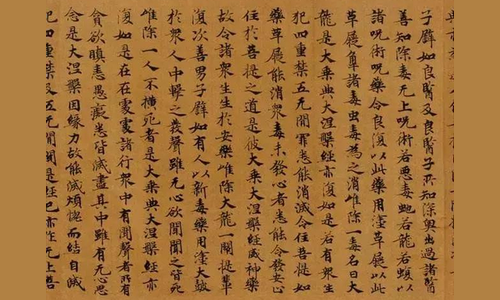 子辟如良醫及良醫子所知深奧出過諸醫
善知除毒无上呪術若惡毒虵若龍若蝮以
諸呪術呪藥令良復以此藥用塗革屣以此
革屣觸諸毒虫毒為之消唯除一毒名曰大
龍是大乘典大涅槃經亦復如是若有衆生
犯四重禁五无間罪悉能消滅令住菩提如
藥革屣能消衆毒未發心者悉能令發安心
住於菩提之道是彼大乘大涅槃經威神藥
故令諸衆生生於安樂唯除大龍一闡提輩
復次善男子辟如有人以新毒藥用塗大鼓
於衆人中擊之發聲雖无心欲聞聞之皆死
唯除一人不橫死者是大乘典大涅槃經亦
復如是在在處處諸行衆中有聞聲者所有
貪欲瞋恚愚癡悉皆滅盡其中雖有无心思
念是大涅槃因緣力故能滅煩惱而結自滅
犯四重禁及五无間聞是經已亦作无上菩